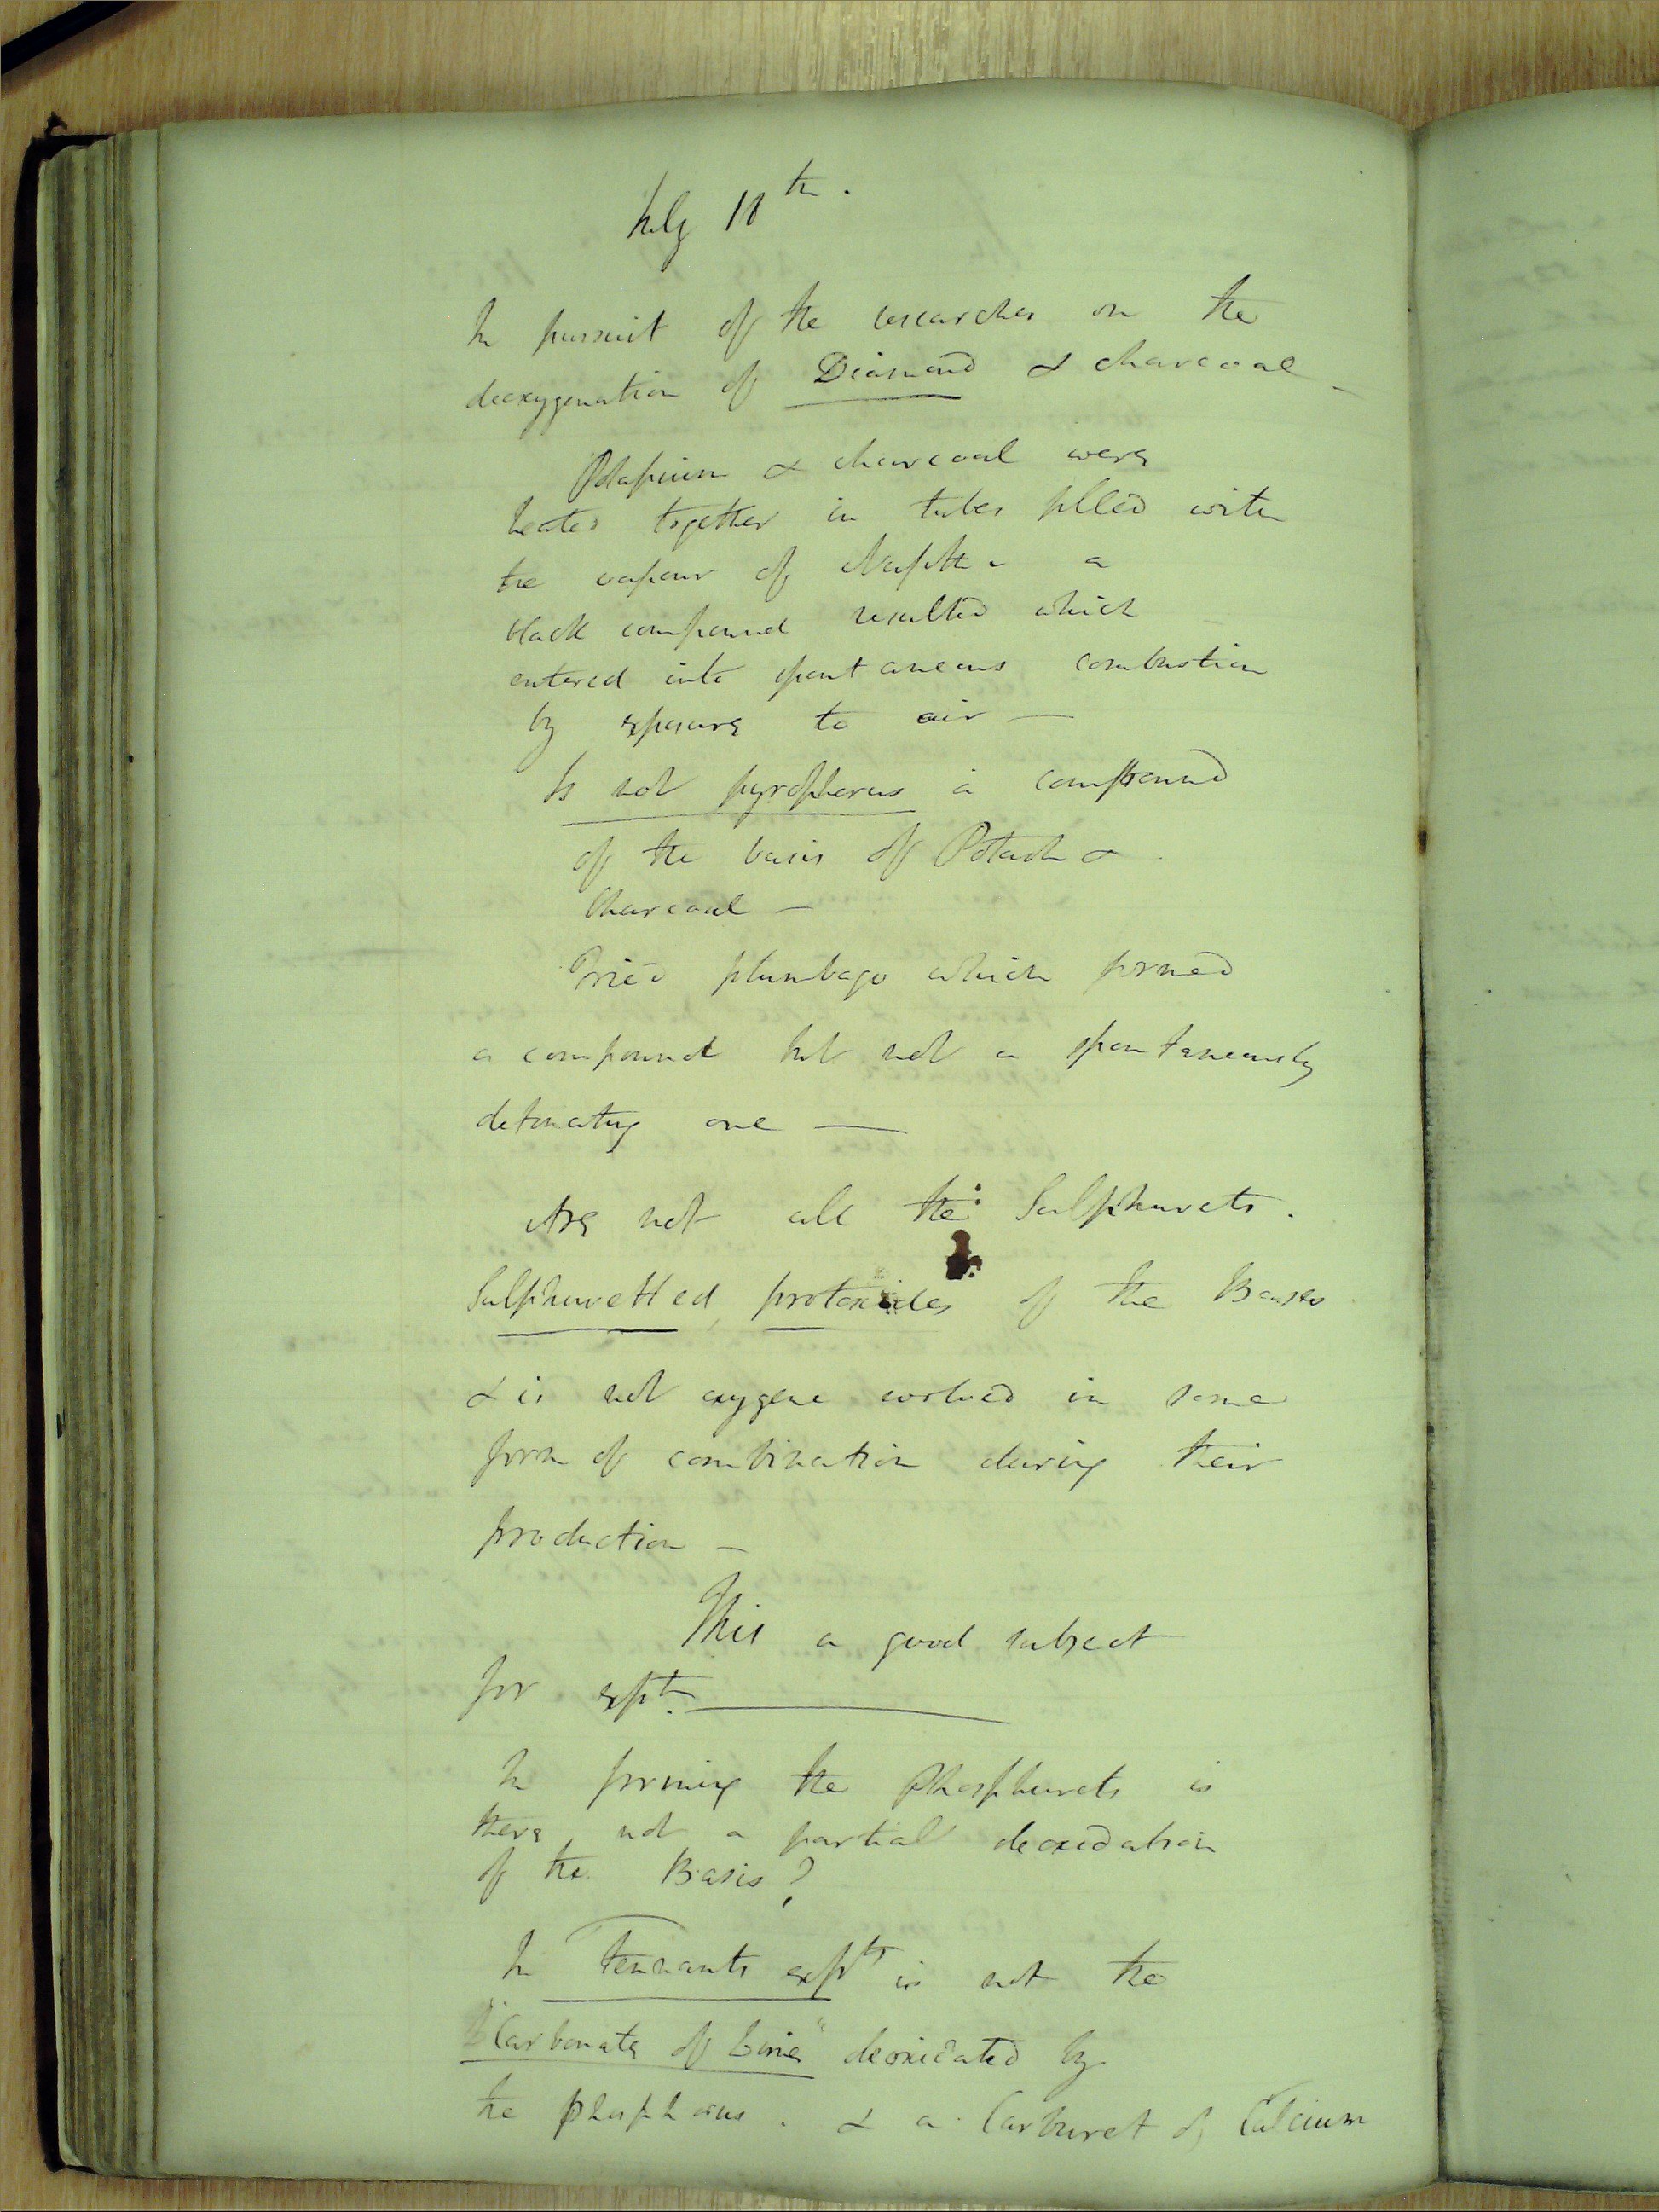 July 10th.
In pursuit of the researches on the
deoxygenation of Diamond & charcoal -
Potassium & charcoal were
heated together in tubes filled with
the vapour of Naptha a
black compound resulted which
entered into spontaneous combustion
by exposure to air —
Is not pyrophorus a compound
of the basis of Potash &
Charcoal -
Tried plumbago which formed
a compound but not a spontaneously
detonating one —
Are not all the Sulphurets.
Sulphuretted protoxides of the Bases
& is not oxygene evolved in some
form of combination during their
production -
This a good subject
for expt. —
In forming the Phosphurets is
there not a partial deoxidation
of the Basis?
In Tennants expts is not the
"Carbonate of Lime" deoxidated by
the phosphorus. & a Carburet of Calcium